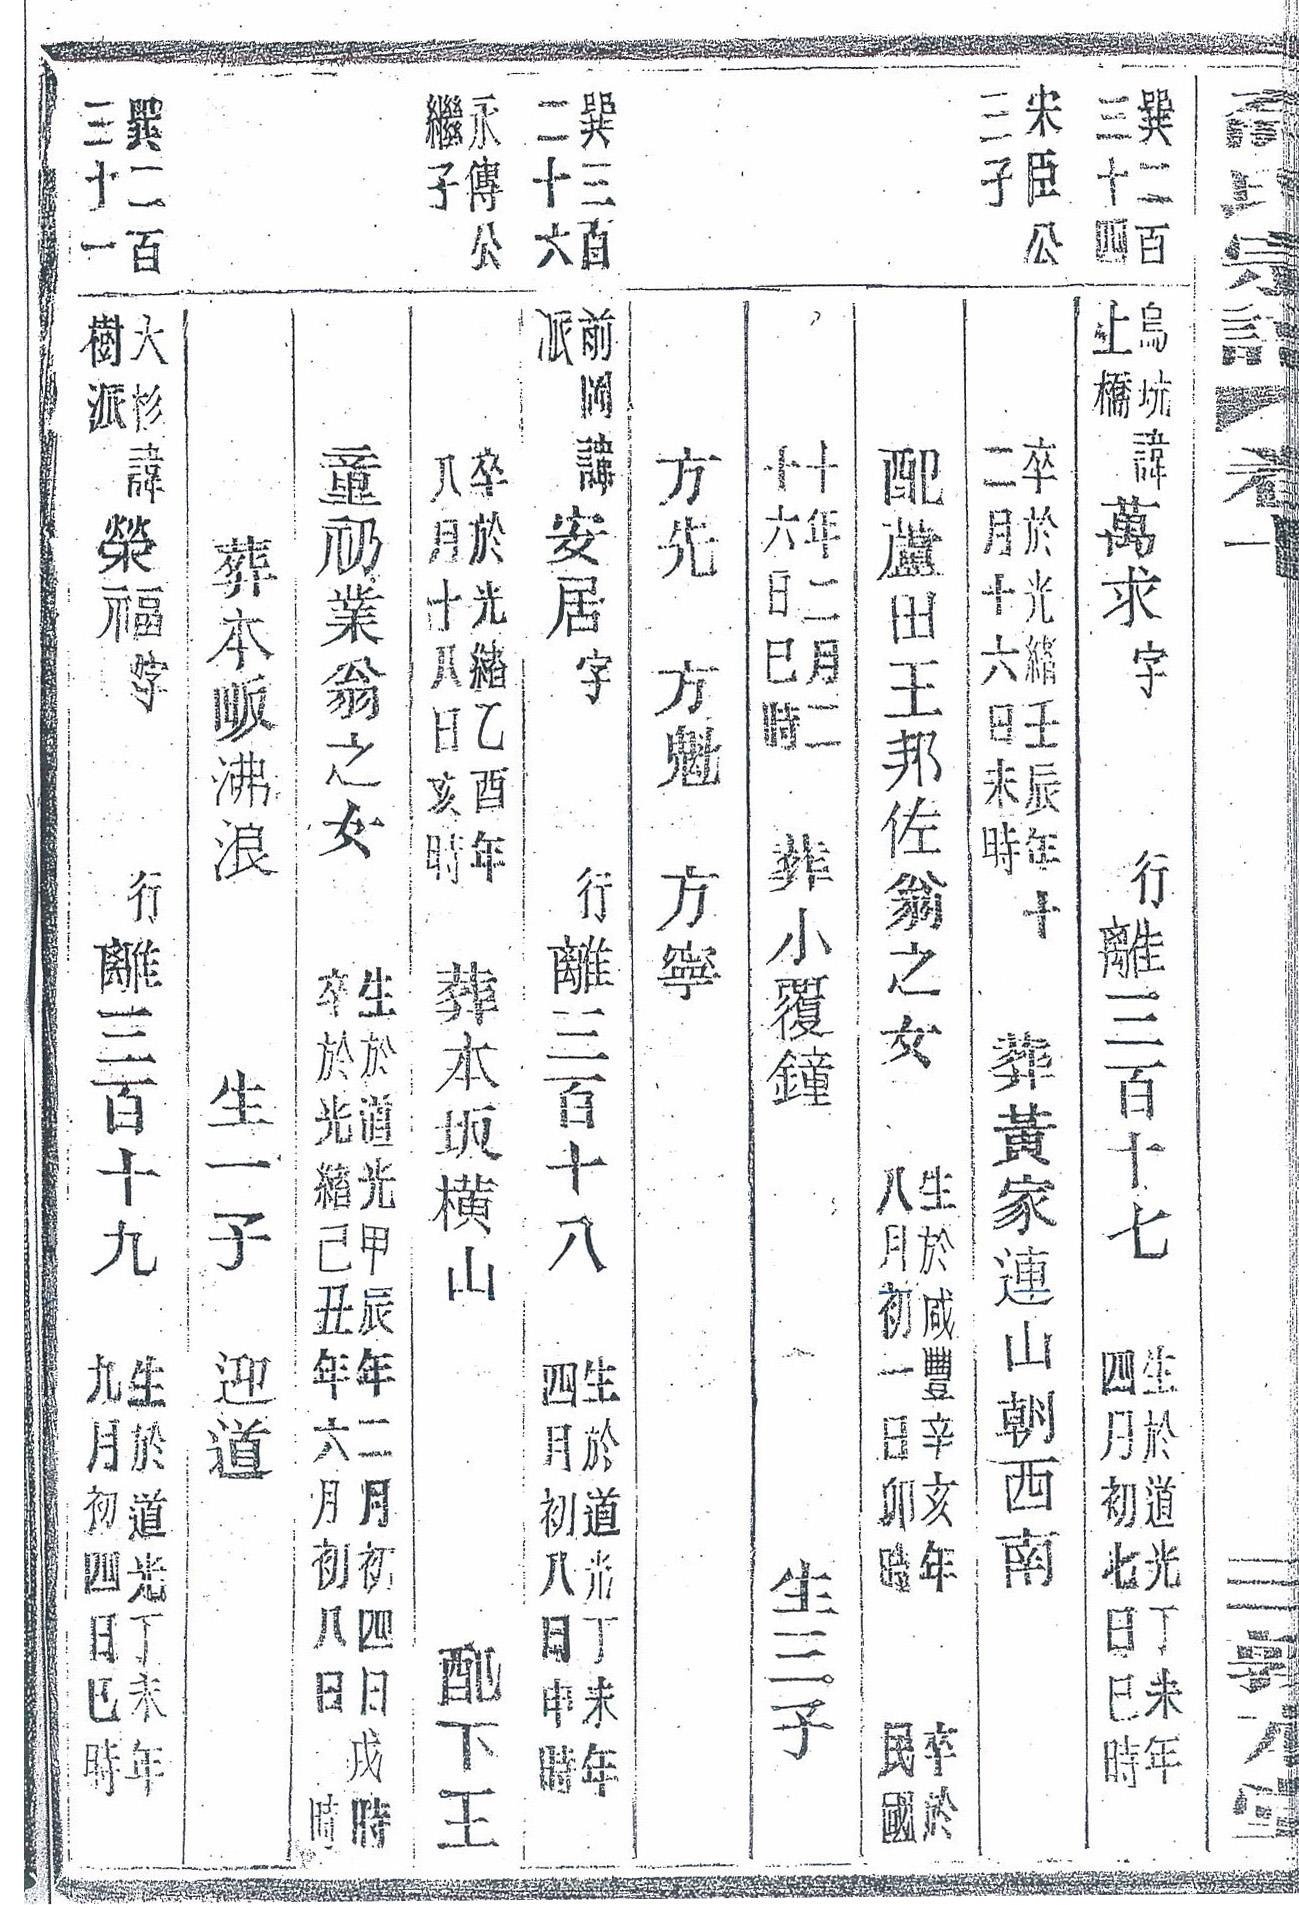 氏宗譜 卷一
巽二百三十四 烏坑上橋 諱萬求字 行離三百十七 生於道光丁未年四月初七日巳時
宋臣公三子 卒於光緒壬辰年十二月十六日未時 葬黃家連山朝西南
配蘆田王邦佐翁之女 生於咸豐辛亥年八月初一日卯時 卒於民國
十年二月二十六日巳時 葬小覆鐘 生三子
方先 方魁 方寧
巽三百二十六 前岡派 諱安居字 行離三百十八 生於道光丁未年四月初八日申時
永傳公繼子 卒於光緒乙酉年八月十八日亥時 葬本坂橫山 配下王
童礽業翁之女 生於道光甲辰年二月初四日戌時 卒於光緒己丑年六月初八日 時
葬本畈沸浪 生一子 迎道
巽二百三十一 大杉樹派 諱榮福字 行離三百十九 生於道光丁未年九月初四日巳時